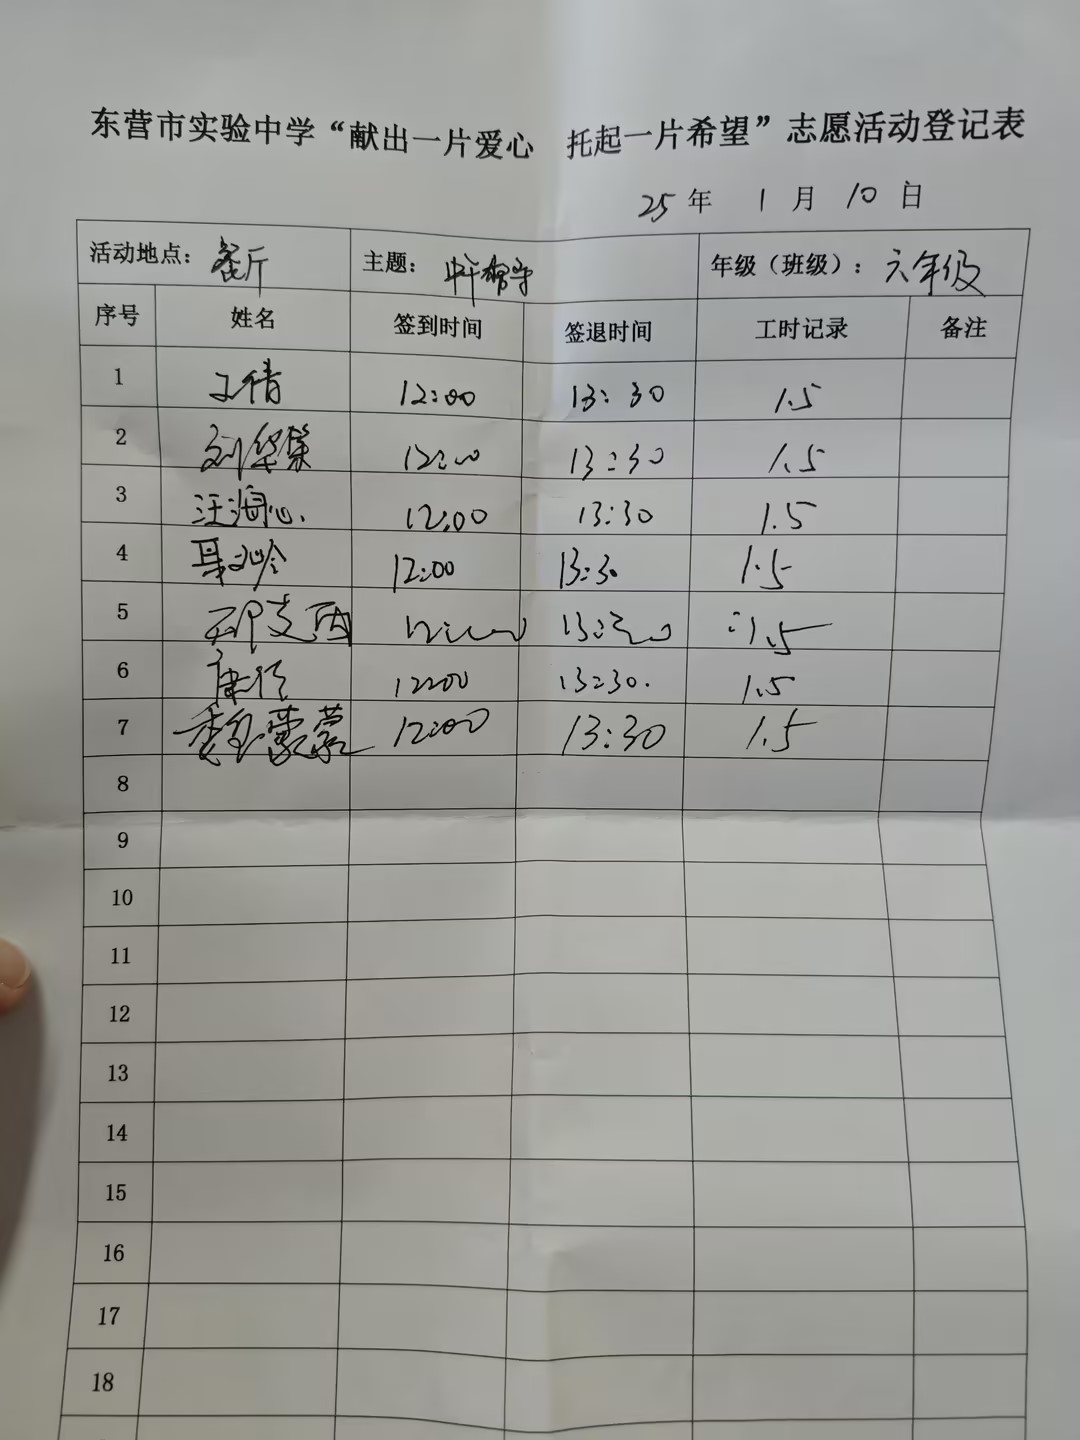 东营市实验中学“献出一片爱心 托起一片希望”志愿活动登记表
25 年 1 月 10 日
活动地点： 餐厅 主题： 年级（班级）：六年级
序号 姓名 签到时间 签退时间 工时记录 备注
1 12:00 13:30 1.5
2 刘华荣 12:00 13:30 1.5
3 汪海心 12:00 13:30 1.5
4 12:00 13:30 1.5
5 12:00 13:30 1.5
6 12:00 13:30. 1.5
7 12:00 13:30 1.5
8
9
10
11
12
13
14
15
16
17
18